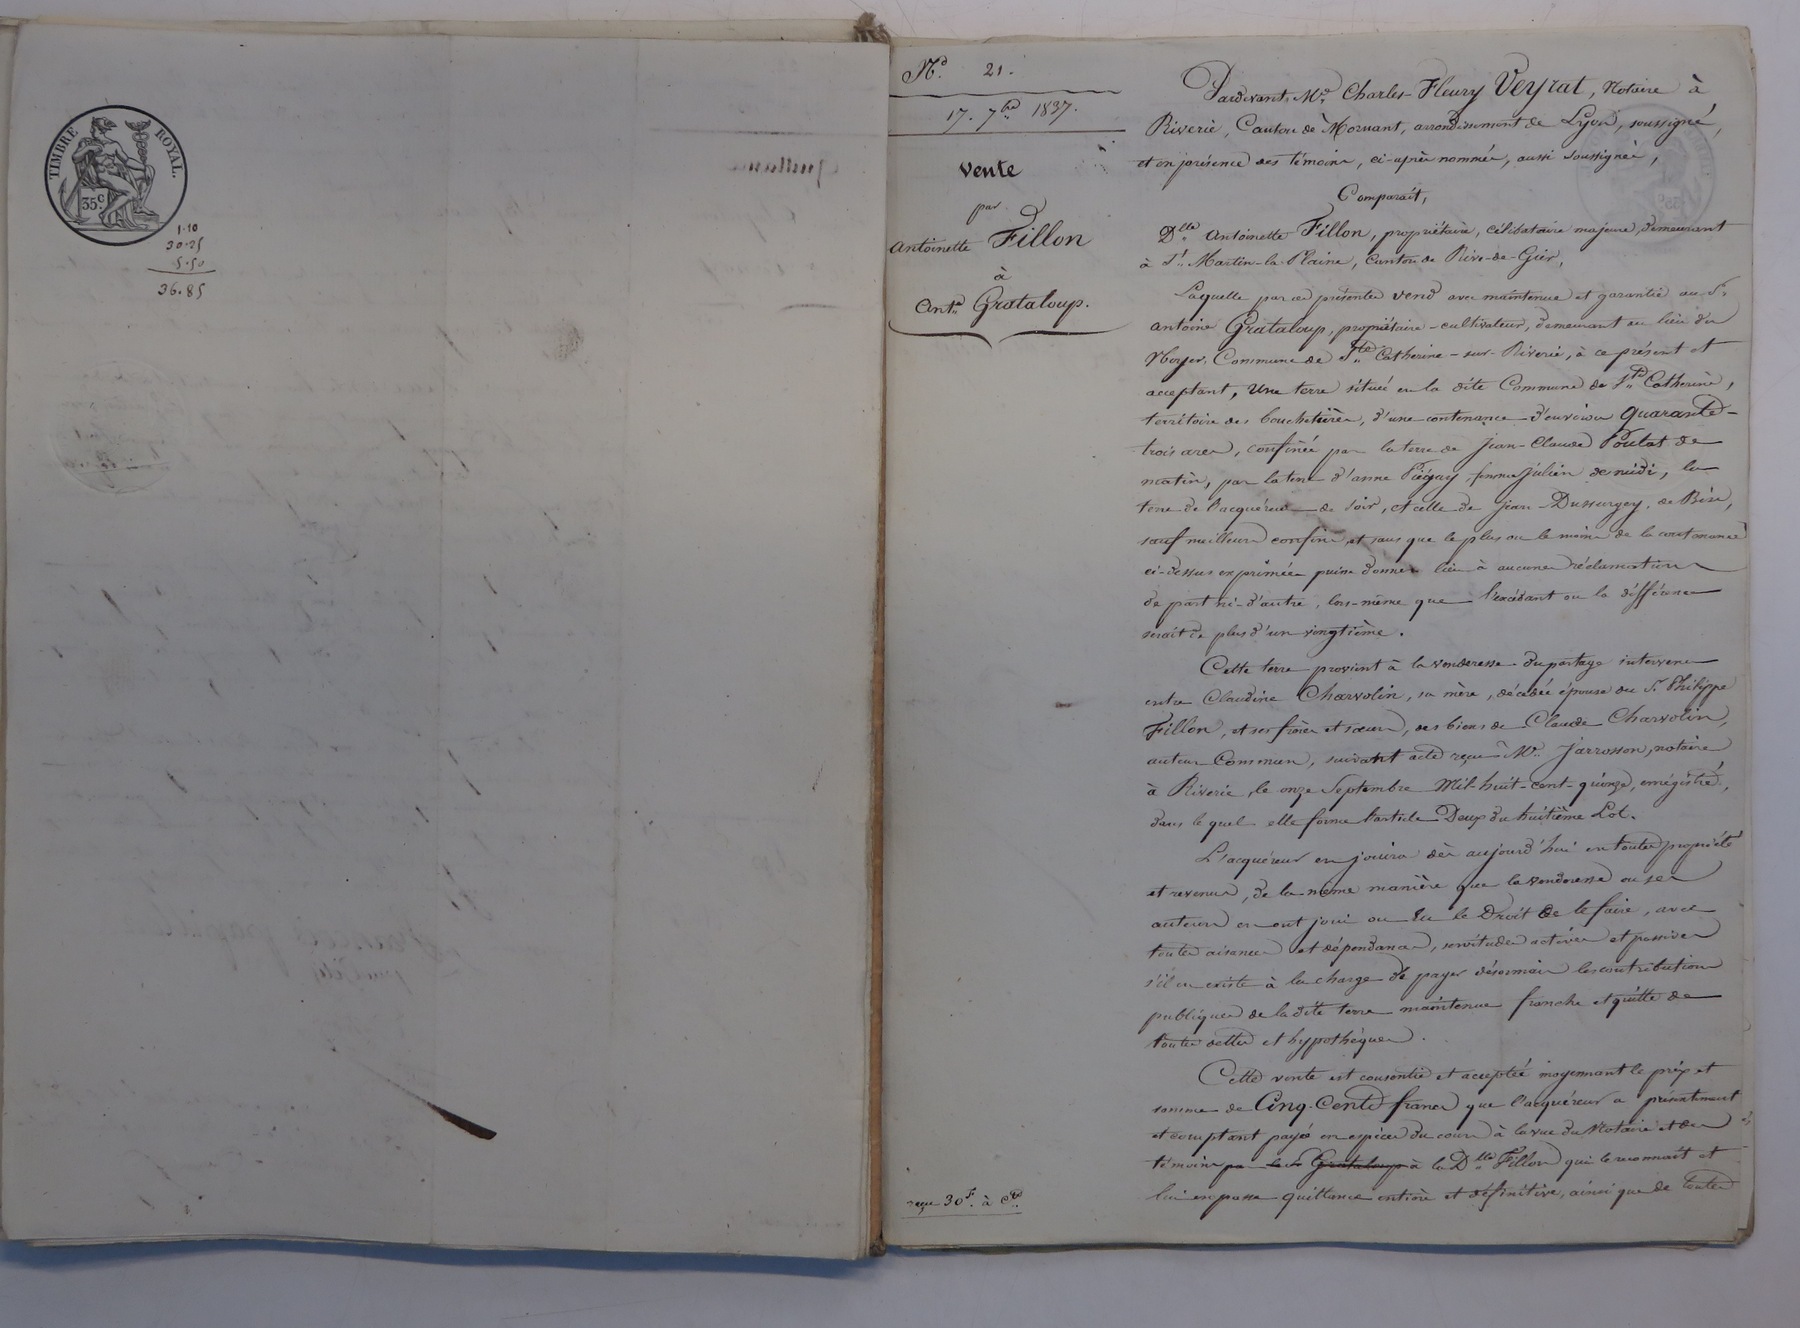 TIMBRE ROYAL.
35 c
1.10
30.25
5.50
36.85
N.° 21.
17. 7bre 1837.
Vente
par
Antoinette Fillon
à
Ant.ne Grataloup.
reçu 30 f. à C.te
Pardevant M.e Charles-Fleury Veyrat, Notaire à
Riverie, Canton de Mornant, arrondissement de Lyon, soussigné,
et en présence des témoins, ci-après nommés, aussi soussignés,
Comparait,
D.lle Antoinette Fillon, propriétaire, célibataire majeure, demeurant
à S.t Martin-la-Plaine, Canton de Rive-de-Gier,
Laquelle par ces présentes vend avec maintenue et garantie au S.r
Antoine Grataloup, propriétaire-cultivateur, demeurant au lieu du
Noyer, Commune de S.te Catherine-sur-Riverie, à ce présent et
acceptant, Une terre située en la dite Commune de S.te Catherine,
territoire des Bouchetières, d'une contenance d'environ Quarante-
trois ares, confinée par la terre de Jean-Claude Poulat de
matin, par la terre d'anne Piégay femme Julien de midi, la
terre de l'acquéreur de soir, et celle de Jean Dussurgey, de Bise,
sauf meilleurs confins, et sans que le plus ou le moins de la contenance
ci-dessus exprimée puisse donner lieu à aucune réclamation
de part ni-d'autre, lors-même que l'excédant ou la différence
serait de plus d'un vingtième.
Cette terre provient à la venderesse du partage intervenu
entre Claudine Charvolin, sa mère, décédée épouse du S.r Philippe
Fillon, et ses frères et sœurs, des biens de Claude Charvolin,
auteur Commun, suivant acte reçu M.e Jarrosson, notaire
à Riverie, le onze Septembre Mil-huit-cent-quinze, enrégistré,
dans le quel elle forme l'article Deux du huitième Lot.
L'acquéreur en jouira dès aujourd'hui en toute propriété
et revenus, de la même manière que la venderesse ou ses
auteurs en ont joui ou eu le Droit de le faire, avec
toutes aisances et dépendances, servitudes actives et passives
s'il en existe à la charge de payer désormais les contributions
publiques de la dite terre maintenue franche et quitte de
toutes dettes et hypothèques.
Cette vente est consentie et acceptée moyennant le prix et
somme de Cinq-Cents francs que l'acquéreur a présentement
et comptant payé en espèces du cours à la vue du Notaire et des
témoins par le S.r Grataloup à la D.lle Fillon qui le reconnait et
lui en passe quittance entière et définitive, ainsi que de toutes